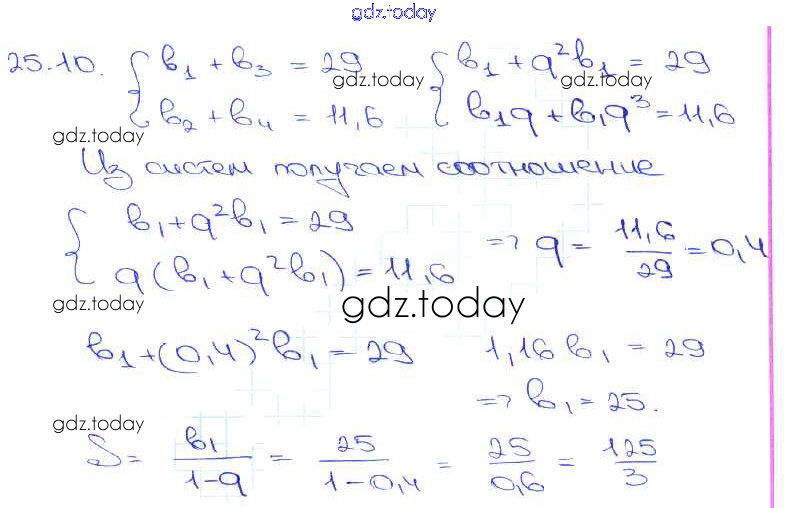 gdz.today
25.10. { b₁ + b₃ = 29 { b₁ + q²b₁ = 29
gdz.today gdz.today
b₂ + b₄ = 11,6 b₁q + b₁q³ = 11,6
gdz.today
Из систем получаем соотношение
{ b₁ + q²b₁ = 29
q(b₁ + q²b₁) = 11,6 => q = 11,6/29 = 0,4
gdz.today gdz.today
b₁ + (0,4)²b₁ = 29 1,16 b₁ = 29
=> b₁ = 25.
gdz.today
S = b₁/(1-q) = 25/(1-0,4) = 25/0,6 = 125/3